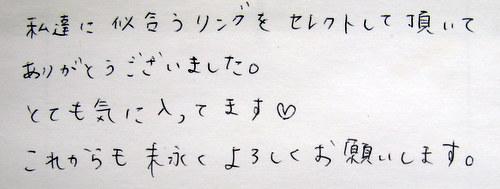 私達に似合うリングをセレクトして頂いて
ありがとうございました。
とても気に入ってます♡
これからも末永くよろしくお願いします。